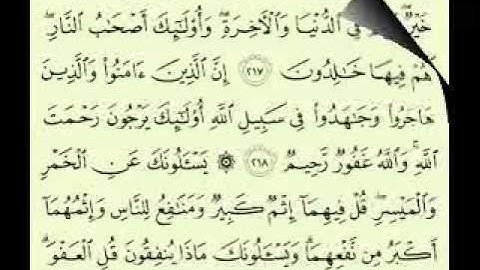 فِي الدُّنْيَا وَالْآخِرَةِ ۖ وَأُولَٰئِكَ أَصْحَابُ النَّارِ ۖ
هُمْ فِيهَا خَالِدُونَ ٢١٧ إِنَّ الَّذِينَ ءَامَنُوا وَالَّذِينَ
هَاجَرُوا وَجَاهَدُوا فِي سَبِيلِ اللَّهِ أُولَٰئِكَ يَرْجُونَ رَحْمَتَ
اللَّهِ ۚ وَاللَّهُ غَفُورٌ رَّحِيمٌ ٢١٨ ۞ يَسْـَٔلُونَكَ عَنِ الْخَمْرِ
وَالْمَيْسِرِ ۖ قُلْ فِيهِمَا إِثْمٌ كَبِيرٌ وَمَنَافِعُ لِلنَّاسِ وَإِثْمُهُمَا
أَكْبَرُ مِن نَّفْعِهِمَا ۗ وَيَسْـَٔلُونَكَ مَاذَا يُنفِقُونَ قُلِ الْعَفْوَ ۗ